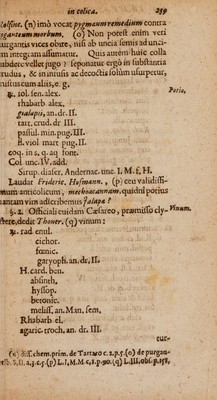 in colica. 259
Rolfinc. (n) imò vocat pygmæum remedium contra
giganteum morbum. (o) Non potest enim veri
purgantis vices obire, nisi ab uncia semis ad unci-
am integram assumatur. Quis autem huic colla
subderet vellet jugo? seponatur ergò in substantia
crudus, & in infusis ac decoctis solùm usurpetur,
cum aliis, e. g.
Potio,
℞. fol. sen. alex.
rhabarb. alex.
gialapii, an. dr. II.
tart. crud. dr. III.
passul. min. pug. III.
fl. viol. mart pug. II.
coq. in s. q. aq. font.
Col. unc. IV. add.
Sirup. diaser. Andernac. unc. I. M. f. H.
Laudat Frideric. Hofmann, (p) ceu validissi-
mum anticolicum, mechoacannam. quidni potius
tantam vim adscribemus jalapæ?
§. 2. Officiali cuidam Cæsareo, præmisso cly-
Vinum.
stere, dedit Thoner. (q) vinum:
℞. rad. enul.
cichor.
fœnic.
garyoph. an. dr. II.
H. card. ben.
absinth.
hyssop.
betonic.
meliss. an. Man. sem.
Rhabarb. el.
agaric. troch. an. dr. III.
cur-
(n) diss. chem. prim. de Tartaro c. 2. p. 5. (o) de purgan-
(p) L. I. M. M. c. 1. p. 90. (q) L. III. obs. p. 158.